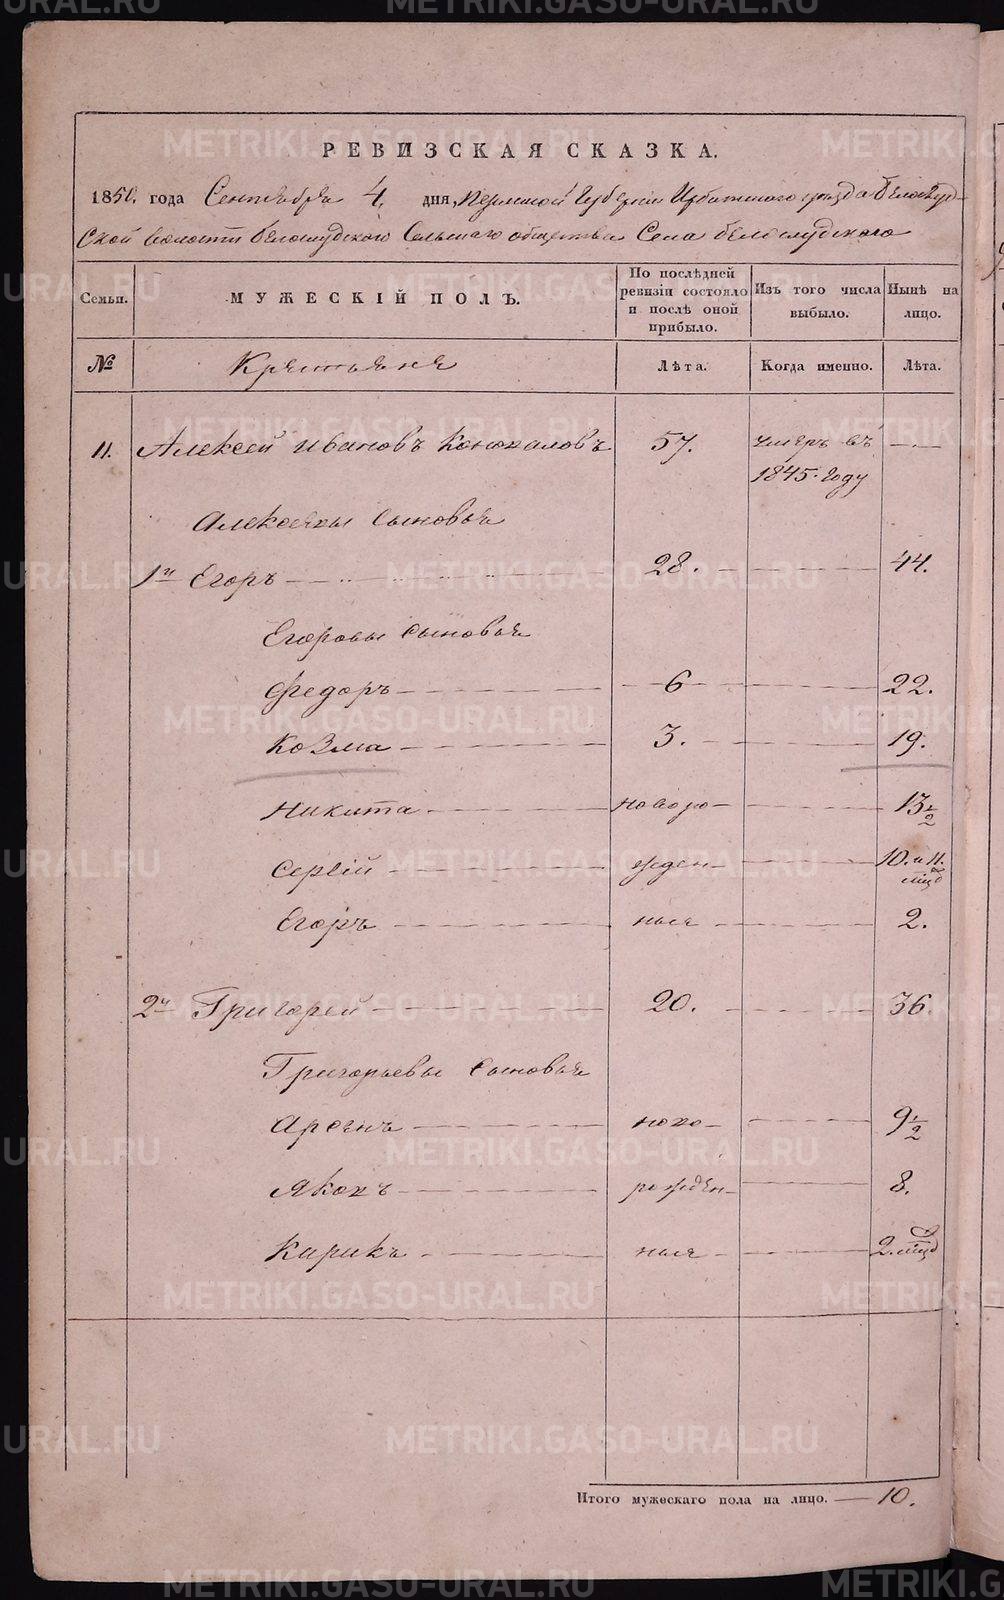 РЕВИЗСКАЯ СКАЗКА.
1850. года Сентября 4. дня, Пермской Губернiи Ирбитскаго уѣзда Бѣлослуд-
ской волости Бѣлослудскаго Сельскаго общества Села Бѣлослудскаго
Семьи. МУЖЕСКІЙ ПОЛЪ. По послѣдней ревизіи состояло и послѣ оной прибыло. Изъ того числа выбыло. Нынѣ на лицо.
№ Крестьяне Лѣта. Когда именно. Лѣта.
11. Алексей Ивановъ Коноваловъ 57. умеръ въ 1845. году —
Алексеявы сыновья
1й Егоръ 28. 44.
Егоровы сыновья
Федоръ 6 22.
Козма 3. 19.
Никита новоро- 13 1/2
Сергiй жден- 10. и 11. мѣсяц
Егоръ ныя 2.
2й Григорей 20. 36.
Григорьевы сыновья
Арсенъ ново- 9 1/2
Яковъ рожден- 8.
Кирикъ ныя 2. мѣсяц
Итого мужескаго пола на лицо. — 10.
METRIKI.GASO-URAL.RU